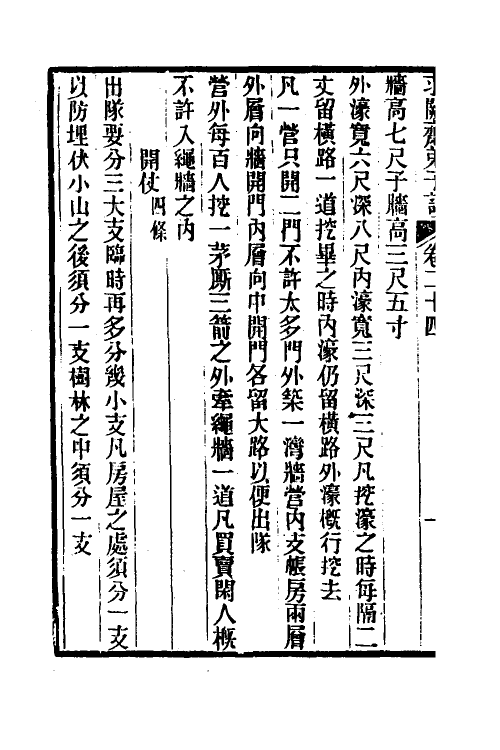 求闕齋弟子記 卷二十四 一
牆高七尺子牆高三尺五寸
外濠寬六尺深八尺內濠寬三尺深三尺凡挖濠之時每隔二
丈留橫路一道挖畢之時內濠仍留橫路外濠概行挖去
凡一營只開二門不許太多門外築一灣牆營內支帳房兩層
外層向牆開門內層向中開門各留大路以便出隊
營外每百人挖一茅厮三箭之外牽繩牆一道凡買賣閑人概
不許入繩牆之內
開仗四條
出隊要分三大支臨時再多分幾小支凡房屋之處須分一支
以防埋伏小山之後須分一支樹林之中須分一支